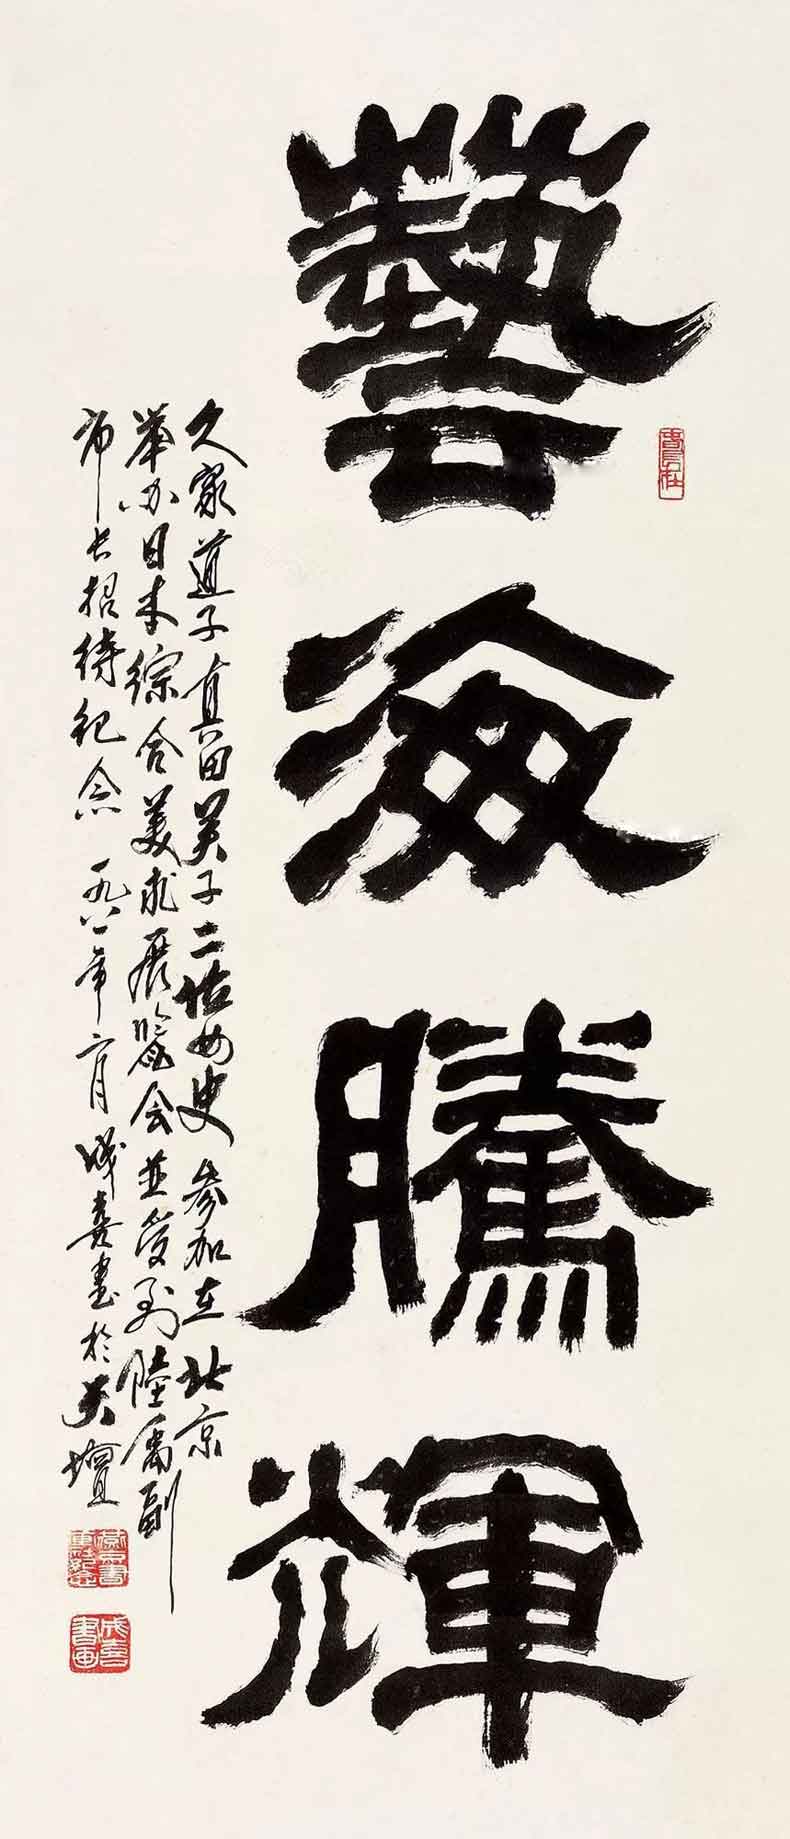 藝海騰輝
久家道子真田芙子二位女史参加在北京
举办日本综合美术展览会並受到陸禹副
市长招待纪念一九八一年六月成喜書於天壇
成喜書画